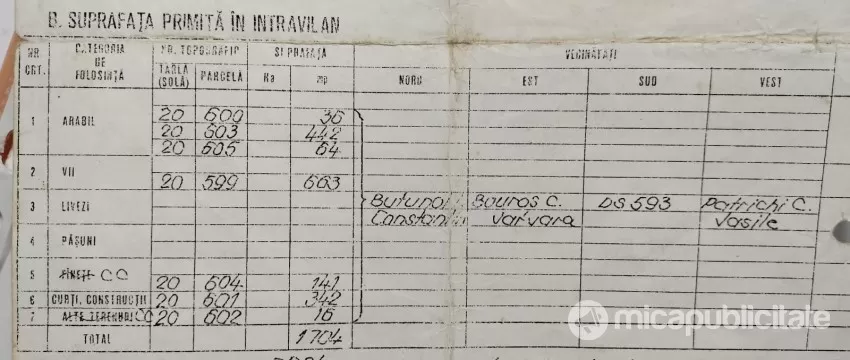 B. SUPRAFAȚA PRIMITĂ ÎN INTRAVILAN
NR. CRT. CATEGORIA DE FOLOSINȚĂ NR. TOPOGRAFIC SUPRAFAȚA VECINĂTĂȚI
TARLA (SOLĂ) PARCELĂ Ha mp NORD EST SUD VEST
1 ARABIL 20 600 36
20 603 442
20 605 64
2 VII
20 599 663
3 LIVEZI Bouroș C. DS 593 Patrichi C.
Constantin Varvara Vasile
4 PĂȘUNI
5 FÎNEȚE CC 20 604 141
6 CURȚI, CONSTRUCȚII 20 601 342
7 ALTE TERENURI CC 20 602 16
TOTAL 1704
micapublicitate